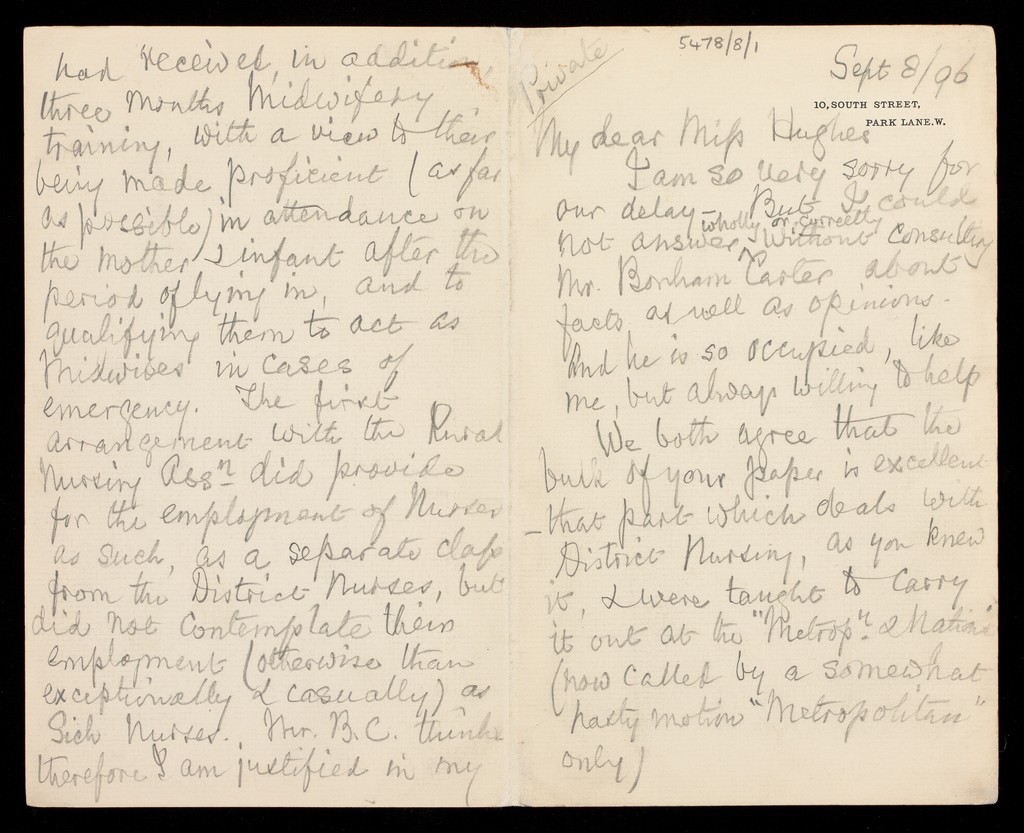 had received, in addition,
three months Midwifery
training, with a view to their
being made proficient (as far
as possible) in attendance on
the mother & infant after the
period of lying in, and to
qualifying them to act as
Midwives in cases of
emergency. The first
arrangement with the Rural
Nursing Assn did provide
for the employment of Nurses
as such, as a separate class
from the District Nurses, but
did not contemplate their
employment (otherwise than
exceptionally & casually) as
Sick Nurses. Mr. B.C. thinks
therefore I am justified in my
Private
5478/8/1
Sept 8/96
10, SOUTH STREET,
PARK LANE. W.
My dear Miss Hughes
I am so very sorry for
our delay – But I could
wholly or correctly
not answer ^ without consulting
Mr. Bonham Carter about
facts as well as opinions –
And he is so occupied, like
me, but always willing to help
We both agree that the
bulk of your paper is excellent
– that part which deals with
District Nursing, as you knew
it, & were taught to carry
it out at the "Metropn. & Nation'l
(now called by a somewhat
hasty motion "Metropolitan"
only)